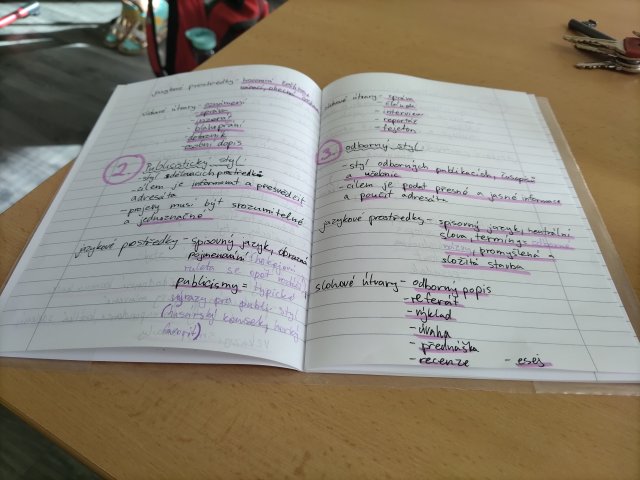 jazykové prostředky - hovorová
slohové útvary - oznámení
- zpráva
- inzerát
- blahopřání
- dotazník
- osobní dopis
2. Publicistický styl
- styl sdělovacích prostředků
- cílem je informovat a přesvědčit
adresáta
- projevy musí být srozumitelné
a jednoznačné
jazykové prostředky - spisovný jazyk, obrazná
pojmenování
ruleta se opět
publicismy = typické
výrazy pro public. styl
slohové útvary - zpráva
- článek
- interview
- reportáž
- fejeton
3. odborný styl
- styl odborných publikací, časopisů
a učebnic
- cílem je podat přesné a jasné informace
a poučit adresáta
jazykové prostředky - spisovný jazyk, neutrální
slova, termíny, odborné
názvy, promyšlená a
složitá stavba
slohové útvary - odborný popis
- referát
- výklad
- úvaha
- přednáška
- recenze - esej